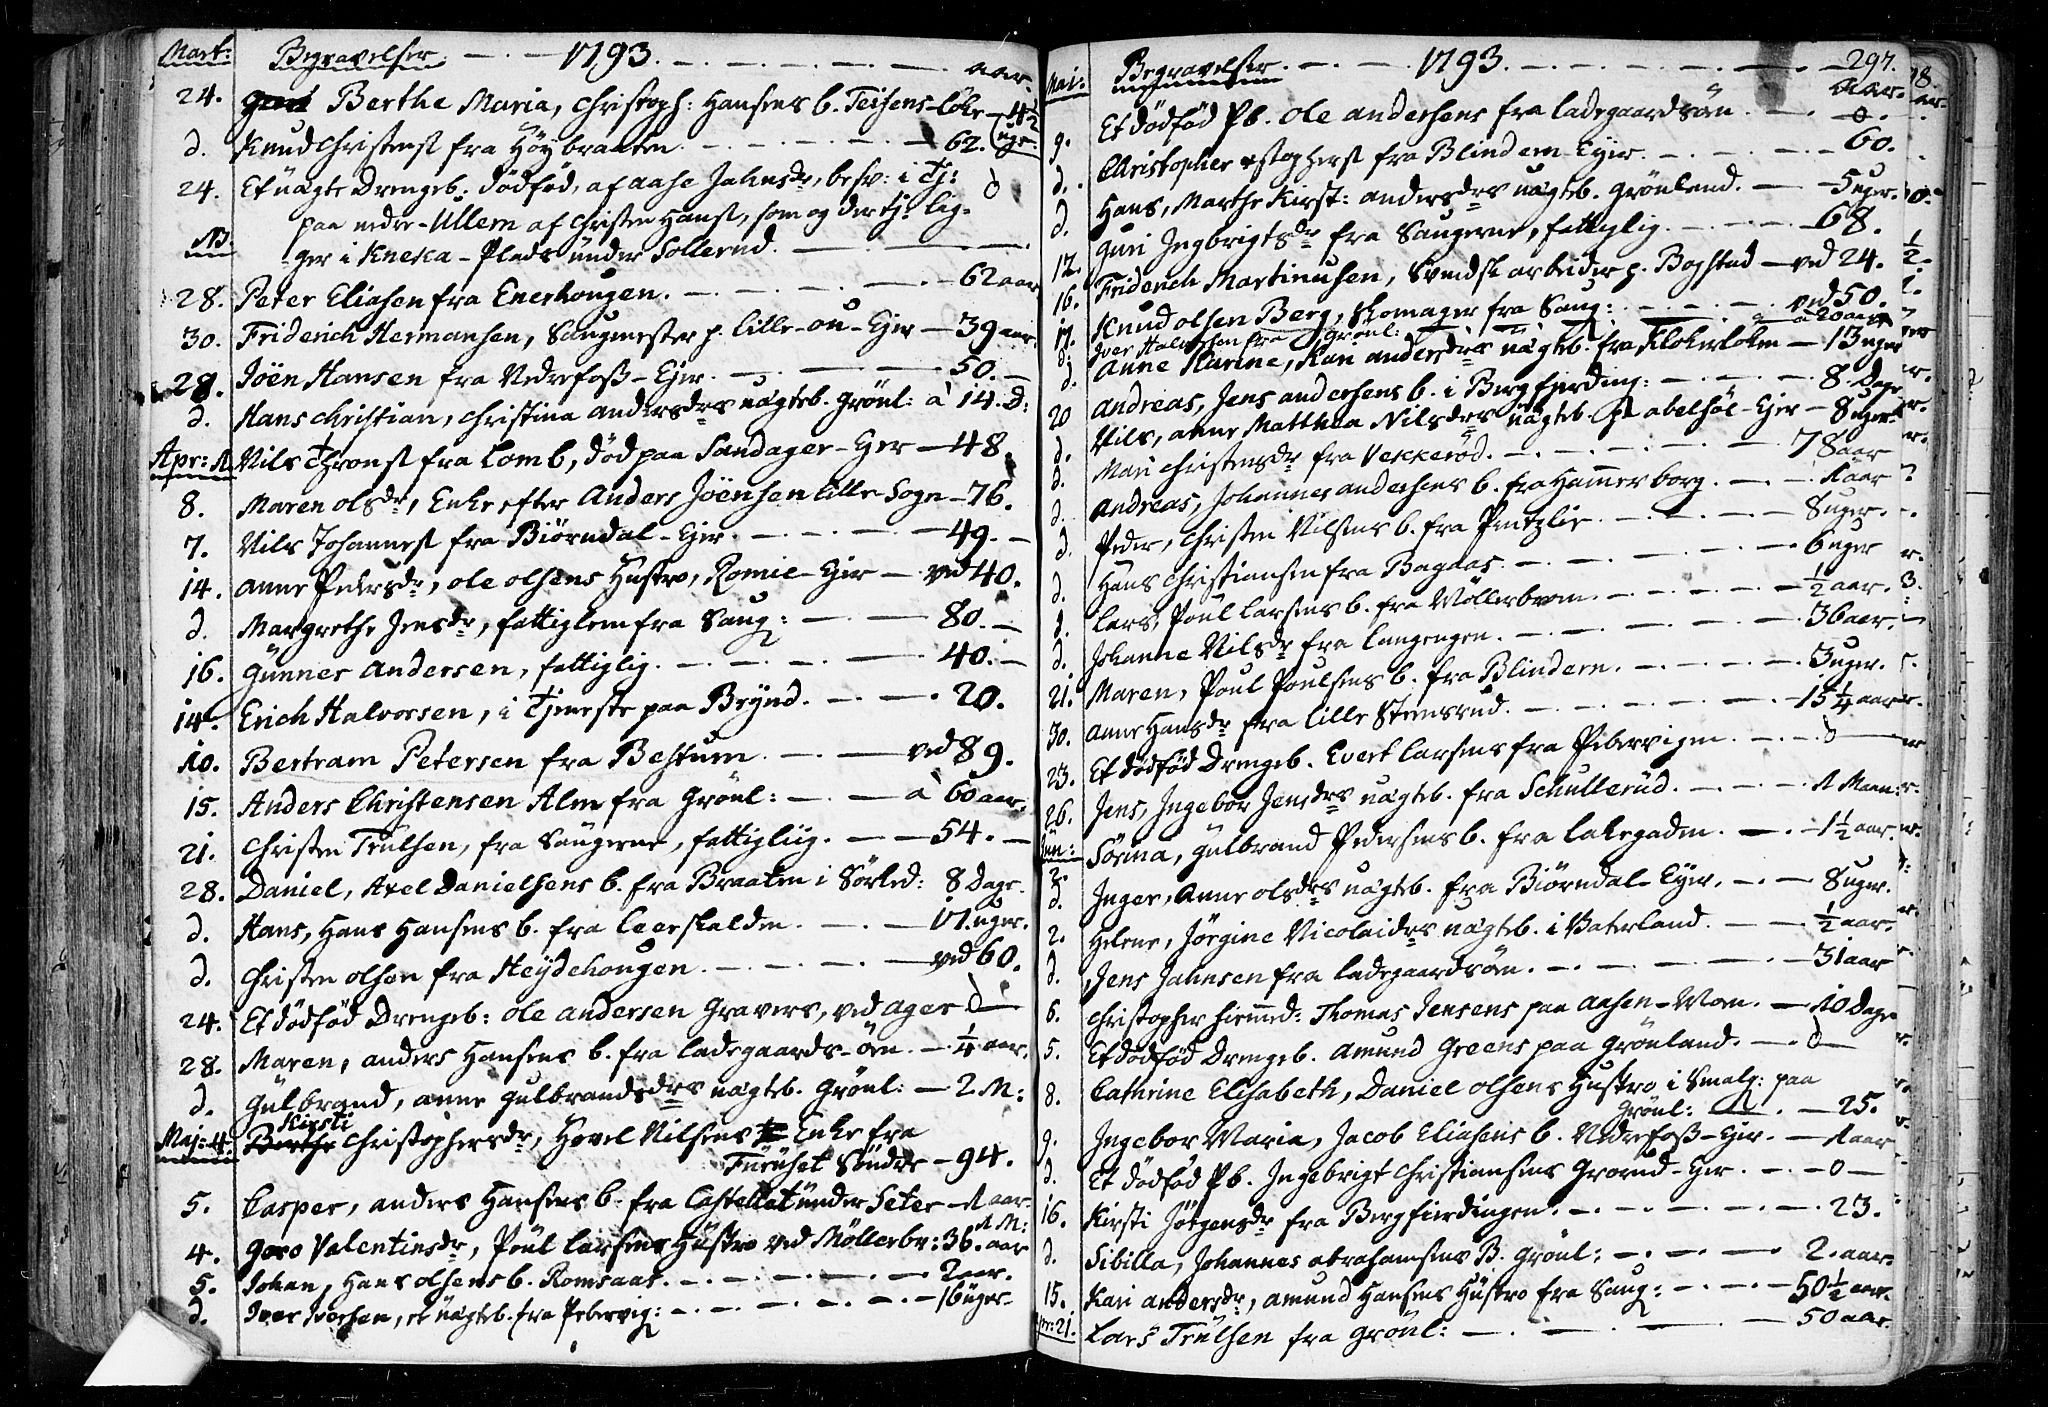 Mart: Begravelser 1793. aar.
24. Berthe Maria, Christoph: Hansens b. Teisens-løke - 42 uger
d. Knud Christenss fra Høybraaten. - 62.
24. Et uægte Drengeb. dødfød, af Aase Jahnsdr, besv: i Tj: d
paa nedre-Ullern af Christen Hanss, som og der tj: lig-
NB. ger i Kneka-Plads under Sollerud.
28. Peter Eliasen fra Enerhougen. - 62 aar
30. Friderich Hermansen, Saugmester p. lille-ou-Ejer - 39 aar.
28. Jöen Hansen fra Nedrefoss-Ejer. - 50.
d. Hans Christian, Christina Andersdrs uægteb. Grönl: à 14. D:
Apr: 1 Nils Thronss fra Lomb, død paa Sandager-Ejer - 48.
8. Maren Olsdr, Enke efter Anders Jöensen lille-Sogn - 76.
7. Nils Johanness fra Biörndal-Ejer. - 49.
14. Anne Pedersdr, Ole Olsens Hustro, Romie-Ejer - ved 40.
d. Margrethe Jensdr, fattiglem fra Saug: - 80.
16. Gunner Andersen, fattiglig. - 40.
14. Erich Halvorsen, i Tjeneste paa Brynd. - 20.
10. Bertram Petersen fra Bestum. - ved 89.
15. Anders Christensen Alm fra Grönl: - a 60 aar.
21. Christen Trulsen, fra Saugerne, fattigliig. - 54.
28. Daniel, Axel Danielsens b. fra Braaten i Sörked: 8 Dage.
d. Hans, Hans Hansens b. fra Leerskalden. - 17 uger.
d. Christen Olsen fra Heydehougen. - ved 60.
24. Et dødfød Drengeb: Ole Andersen Gravers, ved Ager d
28. Maren, Anders Hansens b. fra Ladegaards-öen. - 1/4 aar.
d. Gulbrand, Anne Gulbrandsdrs uægteb. Grönl: - 2. M:
Kirsti
Maj: 4. Berthe Christophersdr, Hovel Nilsens Enke fra
Furuset Söndre - 94.
5. Casper, Anders Hansens b. fra Castellet under Seter - 1 aar.
1 M:
4. Goro Valentinsdr, Poul Larsens Hustro ved Möllerbr: 36. aar
5. Johan, Hans Olsens b. Romsaas. - 2 aar.
d. Iver Iversen, et uægteb. fra Pebervig: - 16 uger.
Mai: Begravelser. 1793. 297.
Aar.
Et dødfød Pb. Ole Andersens fra Ladegaardsöen. - 0.
9. Christopher stophers fra Blindern-Ejer. - 60.
d. Hans, Marthe Kirst: Andersdrs uægteb. Grönland. - 5 uger.
d. Guri Ingbrigtsdr fra Saugerne, fattiglig. - 68.
12. Friderich Martinusen, Svendsk arbeider p. Bogstad - ved 24.
16. Knud Olsen Berg, Skomager fra Saug: - ved 50.
17. Iver Halvorsen fra Grönl: - a 20 aar
d: Anne Karine, Kari Andersdrs uægteb. fra Klokerloken - 13 uger
d. Andreas, Jens Andersens b. i Bergfjerding: - 8. Dage
20 Nils, Anne Matthea Nilsdrs uægteb. p. Abelsöe-Ejer - 8 uger.
d. Mari Christensdr fra Vekkeröd. - 78 aar
d. Andreas, Johannes Andersens b. fra Hammerborg. - 1 aar
d. Peder, Christen Nilsens b. fra Pentzlie. - 8 uger.
d. Hans Christiansen fra Bagaas. - 6 uger
d. Lars, Poul Larsens b. fra Möllerbroen. - 1/2 aar.
d. Johanne Nilsdr fra Langengen. - 36 aar.
d. Maren, Poul Poulsens b. fra Blindern. - 3 uger.
21. Anne Hansdr fra lille Stensrud. - 15 1/4 aar
30. Et dødfød Drengeb. Evert Larsens fra Pibervigen - d
23. Jens, Ingebor Jensdrs uægteb. fra Schullerud. - 1 Maan:
26. Sörina, Gulbrand Pedersens b. fra Lakegaden. - 1 1/2 aar.
Jun:
2. Inger, Anne Olsdrs uægteb. fra Biörndal-Ejer. - 8 uger.
d.
2. Helene, Jörgine Nicolaidrs uægteb. i Vaterland. - 1/2 aar.
d. Jens Jahnsen fra Ladegaardsöen. - 31 aar
6. Christopher hiemmed: Thomas Jensens paa Aasen-Moen. - 10 Dage
5. Et dødfød Drengeb. Amund Greens paa Grönland. - d
8. Cathrine Elisabeth, Daniel Olsens Hustro i Smalg: paa
Grönl: - 25.
9. Ingebor Maria, Jacob Eliasens b. Nedrefoss-Ejer. - 1 aar
d. Et dødfød Pb. Ingebrigt Christiansens Grorud-Ejer. - 0
16. Kirsti Jörgensdr fra Bergfierdingen. - 23.
d. Sibilla, Johannes Abrahamsens B. Grönl: - 2. aar.
15. Kari Andersdr, Amund Hansens Hustro fra Saug: - 50 1/2 aar.
Apr: 21. Lars Trulsen fra Grönl: - 50 aar.